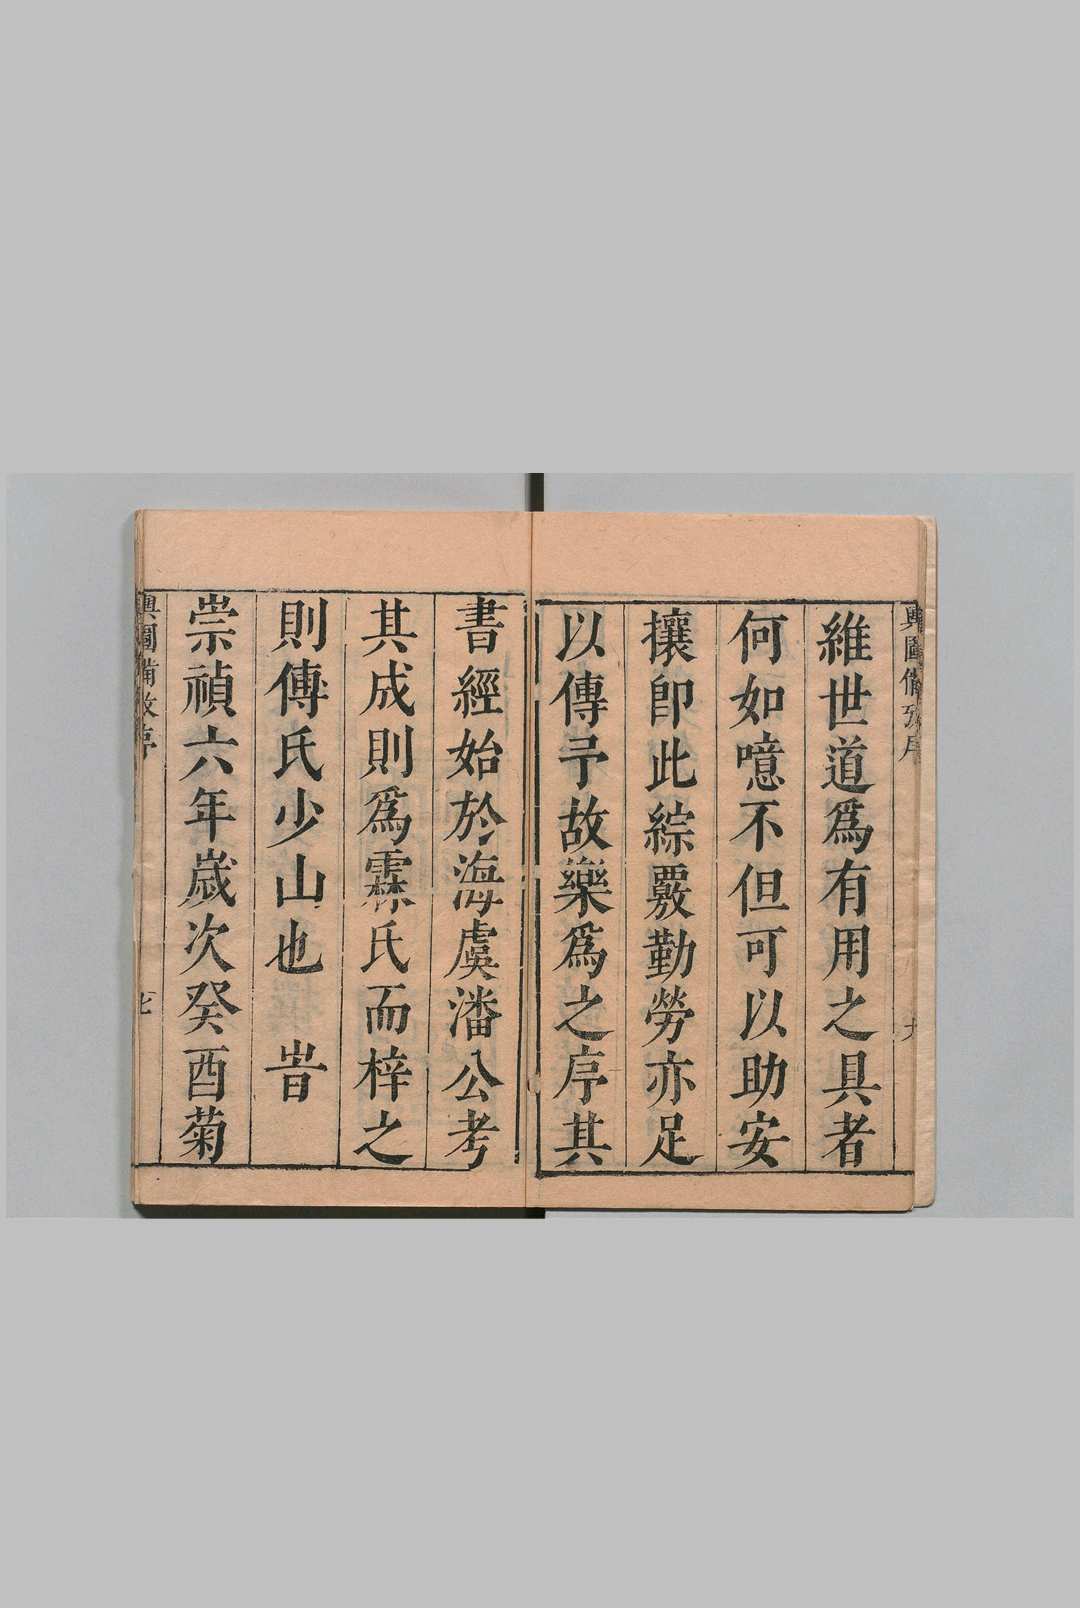 維世道爲有用之具者
何如噫不但可以助安
攘卽此綜覈勤勞亦足
以傳予故樂爲之序其
書經始於海虞潘公考
其成則爲霖氏而梓之
則傳氏少山也 旹
崇禎六年歲次癸酉菊
輿圖備攷序